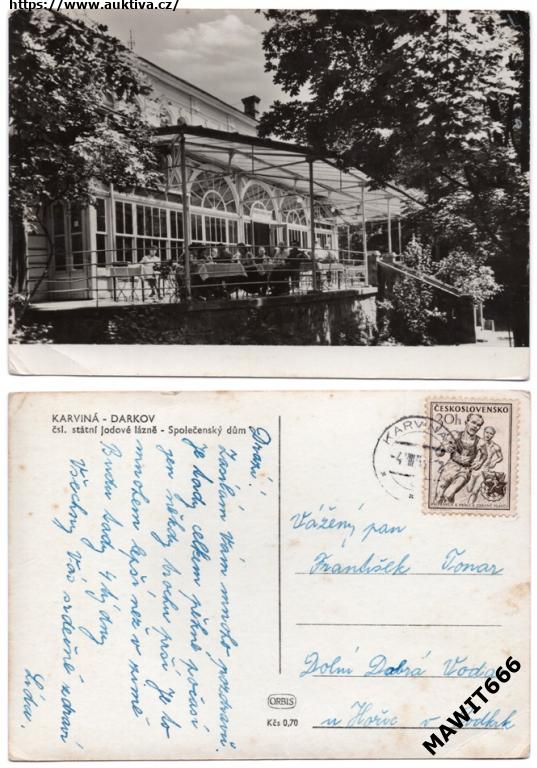 https://www.auktiva.cz/
KARVINÁ - DARKOV
čsl. státní jodové lázně - Společenský dům
Drazí!
Zasílám Vám mnoho pozdravů.
Je tady celkem pěkné počasí
jen někdy trochu prší. Je to
mnohem lepší než v zimě
Budu tady 4 týdny
Všechny Vás srdečně zdraví
KARVINÁ
ČESKOSLOVENSKO
20h
Vážený pan
František Tonar
Dolní Dobrá Voda
u Hořic v Podkrk
ORBIS
Kčs 0,70
MAWIT666